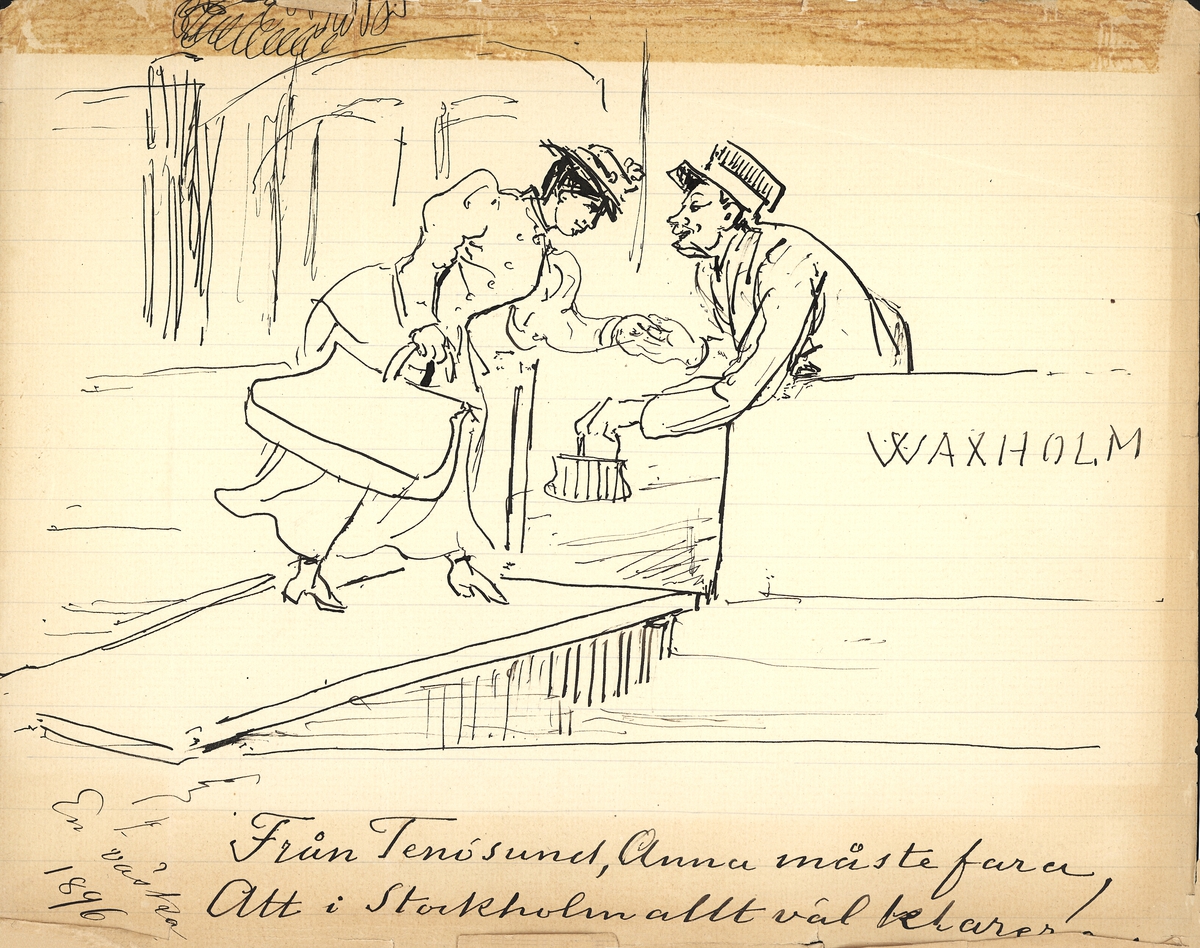 WAXHOLM
Från Tenösund, Anna måste fara,
Att i Stockholm allt väl klarera.
En väska
1896